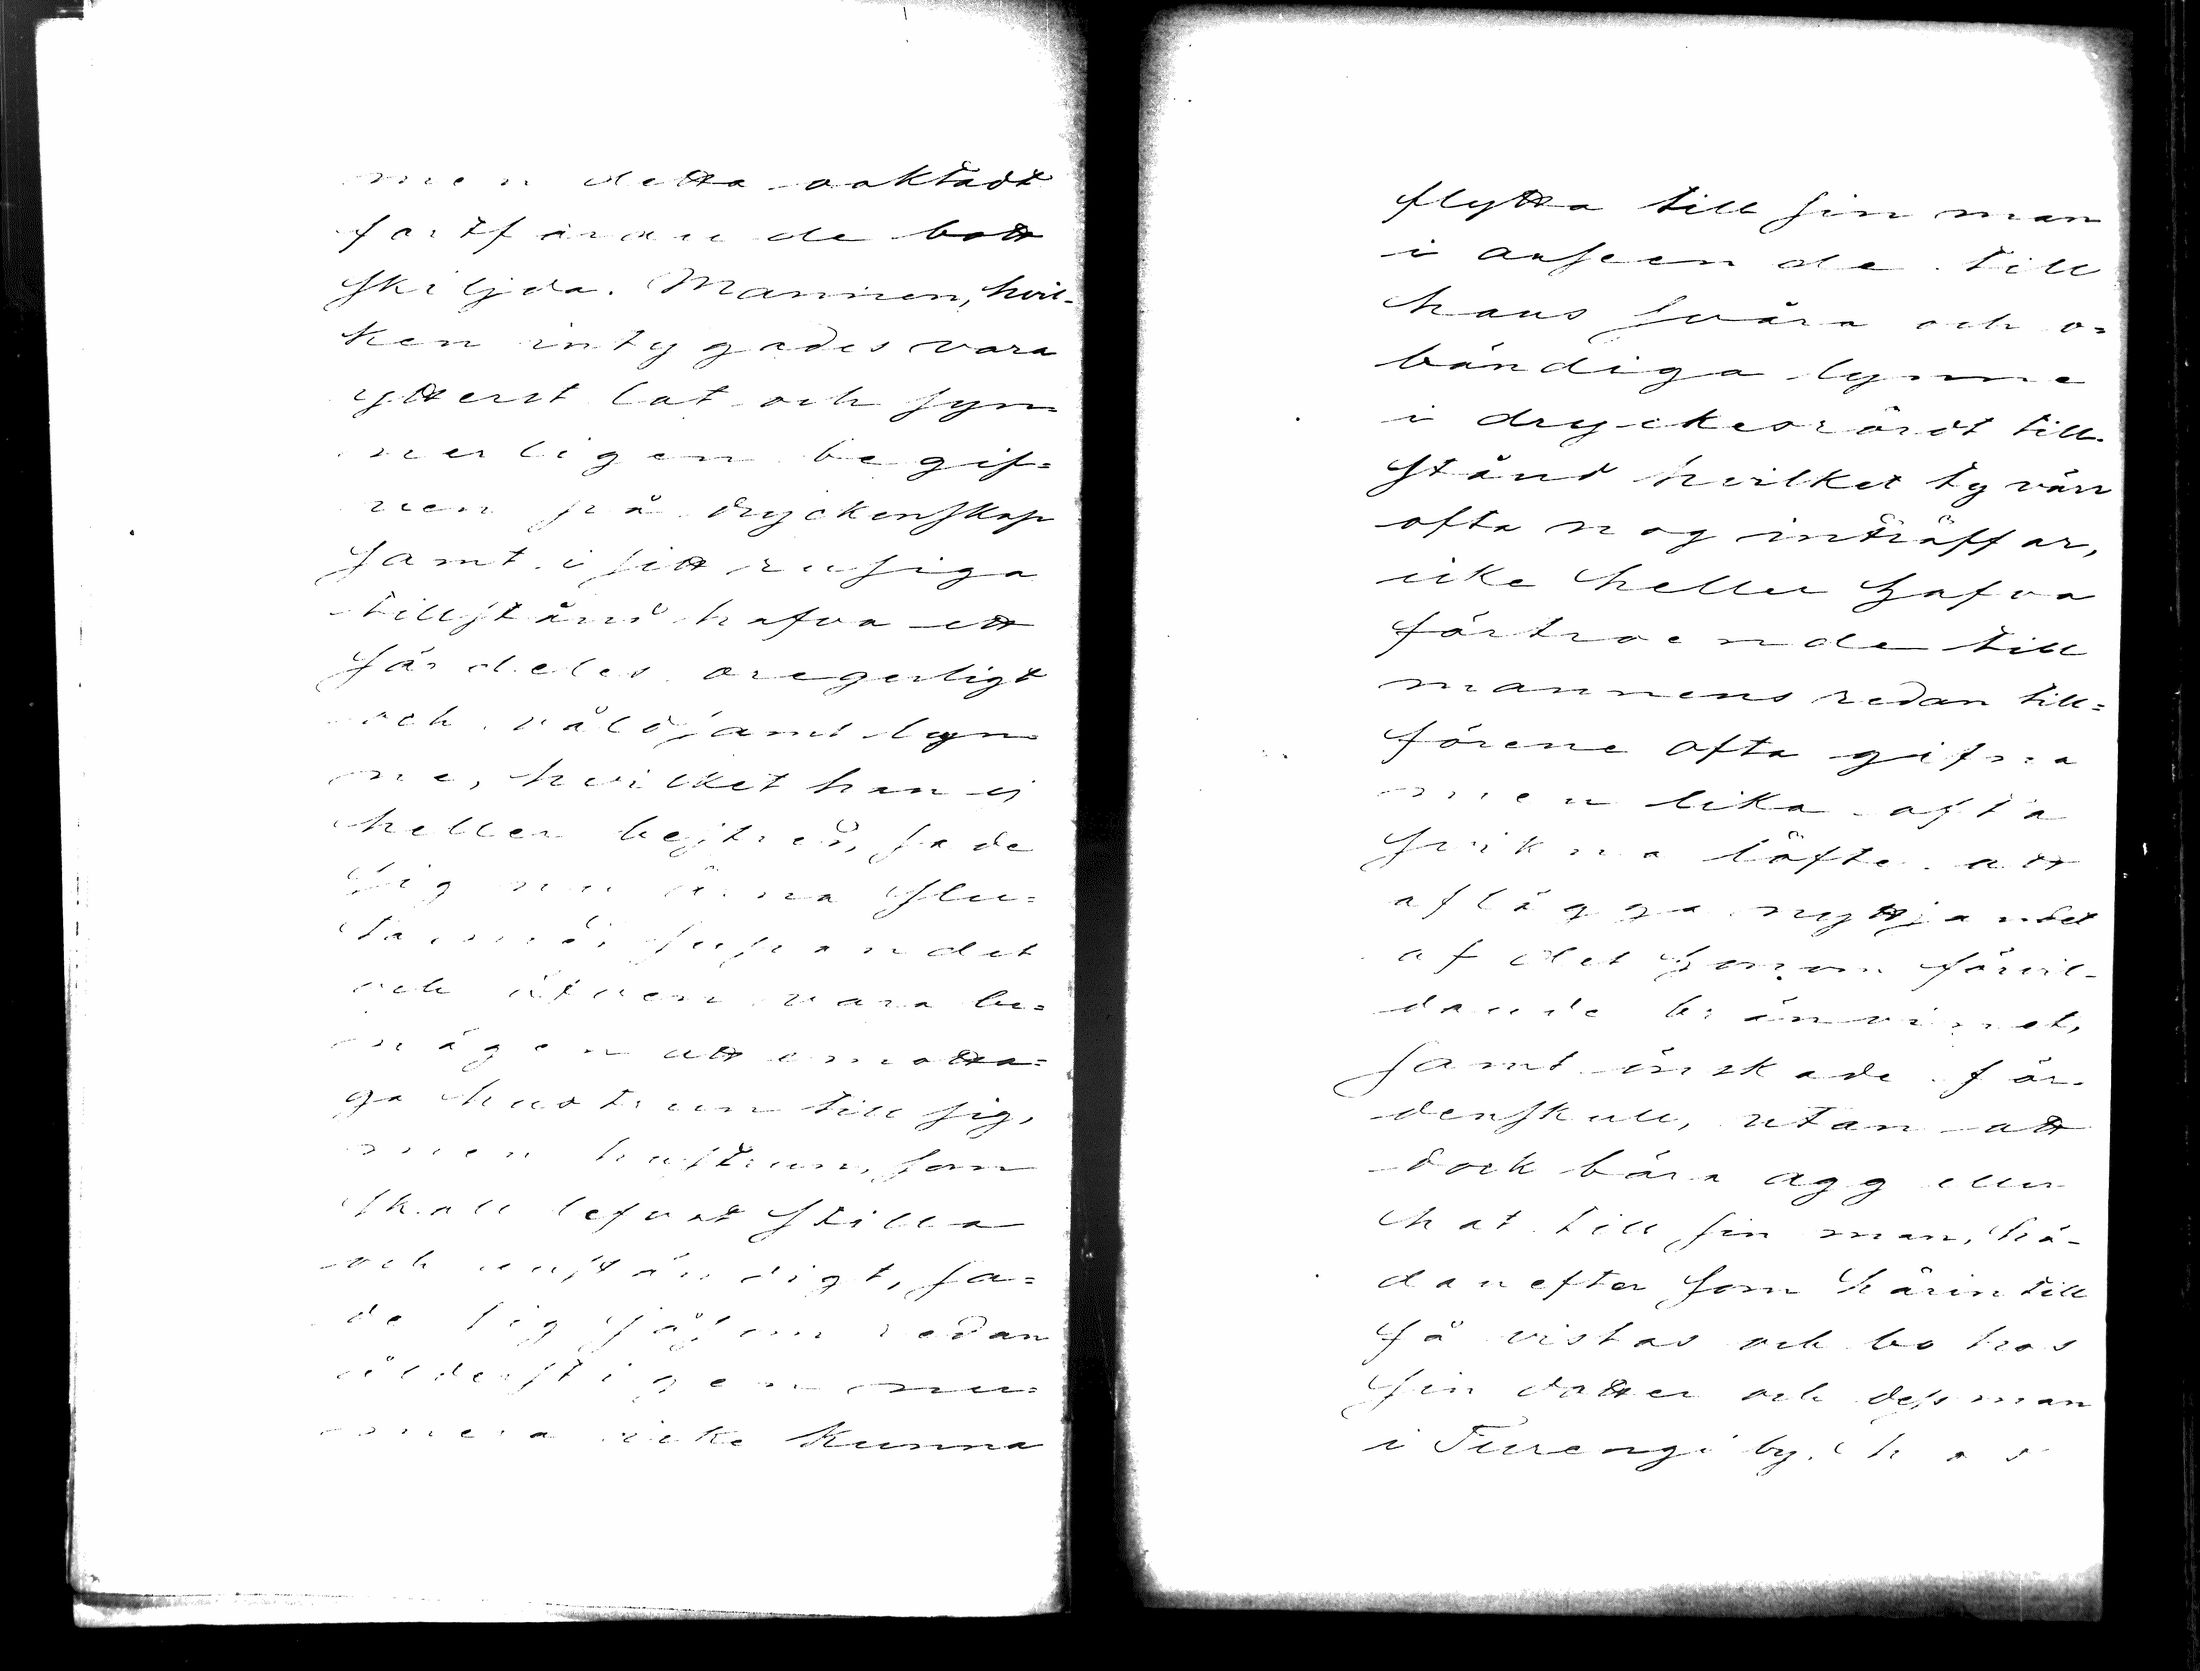 men detta oaktadt
fortfarande bott
skiljda. Mannen, hvil-
ken intygades vara
ytterst lat och syn-
nerligen begif=
ven på dryckenskap
samt i sitt rusiga
tillstånd hafva ett
särdeles oregerligt
och våldsamt lyn-
ne, hvilket han ej
heller bestred, sade
sig nu ärna slu=
ta med supandet
och äfven vara be=
nägen att emotta=
ga hustrun till sig,
men hustrun, som
skall lefvat stilla
och anständigt, sa=
de sig såsom redan
ålderstigen nu=
mera icke kunna
flytta till sin man
i anseende till
hans svåra och o=
bändiga lynne
i dryckesrördt till-
stånd hvilket tyvärr
ofta nog inträffar,
icke heller hafva
förtroende till
mannens redan till=
förene ofta gifna
men lika ofta
svikna löfte att
aflägga nyttjandet
af det honom förvil-
dande bränvinet,
samt önskade för-
denskull, utan att
dock bära agg eller
hat till sin man, hä-
danefter som härintill
få vistas och bo hos
sin dotter och dess man
i Turengi by. hos